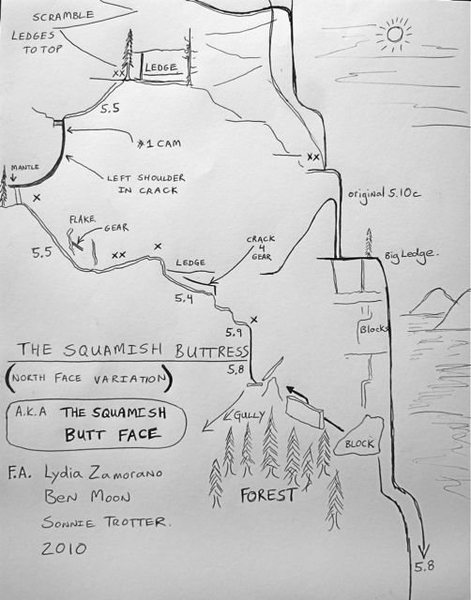 SCRAMBLE
LEDGES
TO TOP
XX
LEDGE
5.5
#1 CAM
XX
MANTLE
LEFT SHOULDER
IN CRACK
original 5.10c
X
FLAKE
GEAR
X
CRACK
4
GEAR
5.5
XX
LEDGE
Big Ledge.
5.4
X
5.9
Blocks
THE SQUAMISH BUTTRESS
5.8
(NORTH FACE VARIATION)
A.K.A THE SQUAMISH
BUTT FACE
GULLY
BLOCK
F.A. Lydia Zamorano
BEN MOON
SONNIE TROTTER.
2010
FOREST
5.8